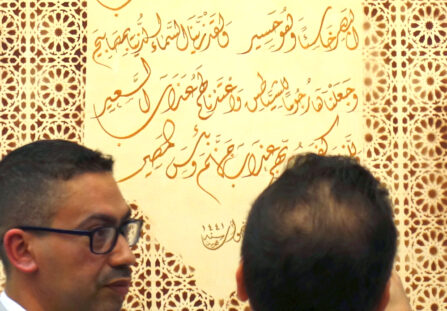 البصر خاسئا وهو حسير ولقد زينا السماء الدنيا بمصابيح
وجعلناها رجوما للشياطين وأعتدنا لهم عذاب السعير
وللذين كفروا بربهم عذاب جهنم وبئس المصير
سنة ١٤٤١